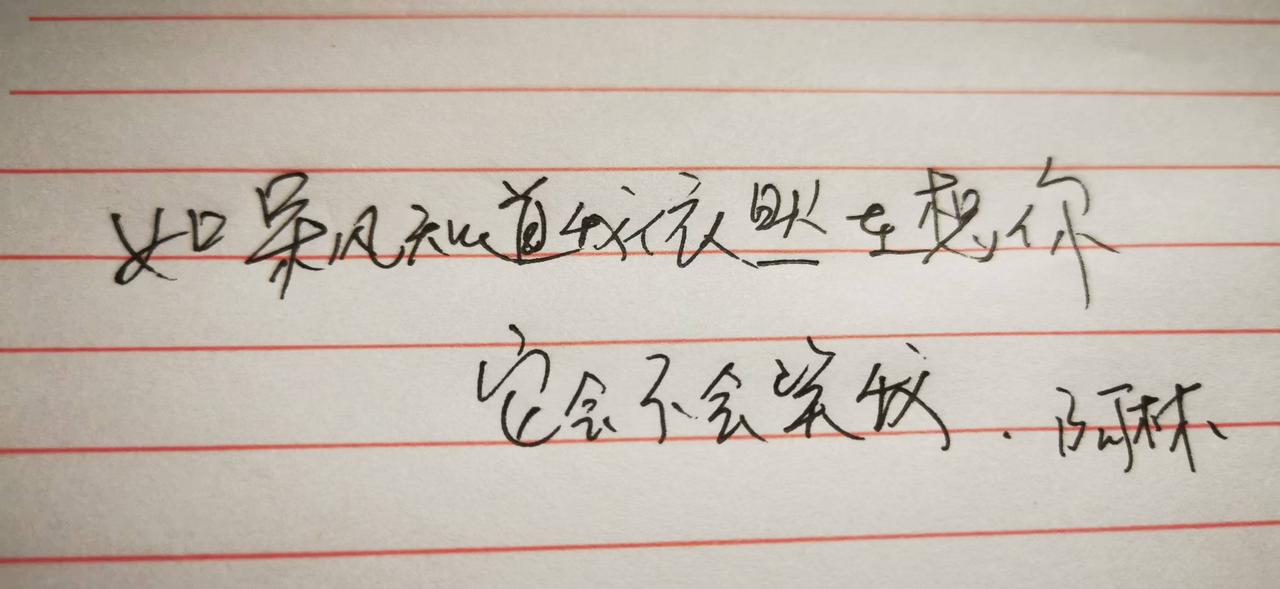 如果风知道我依然在想你
它会不会笑我.阿林